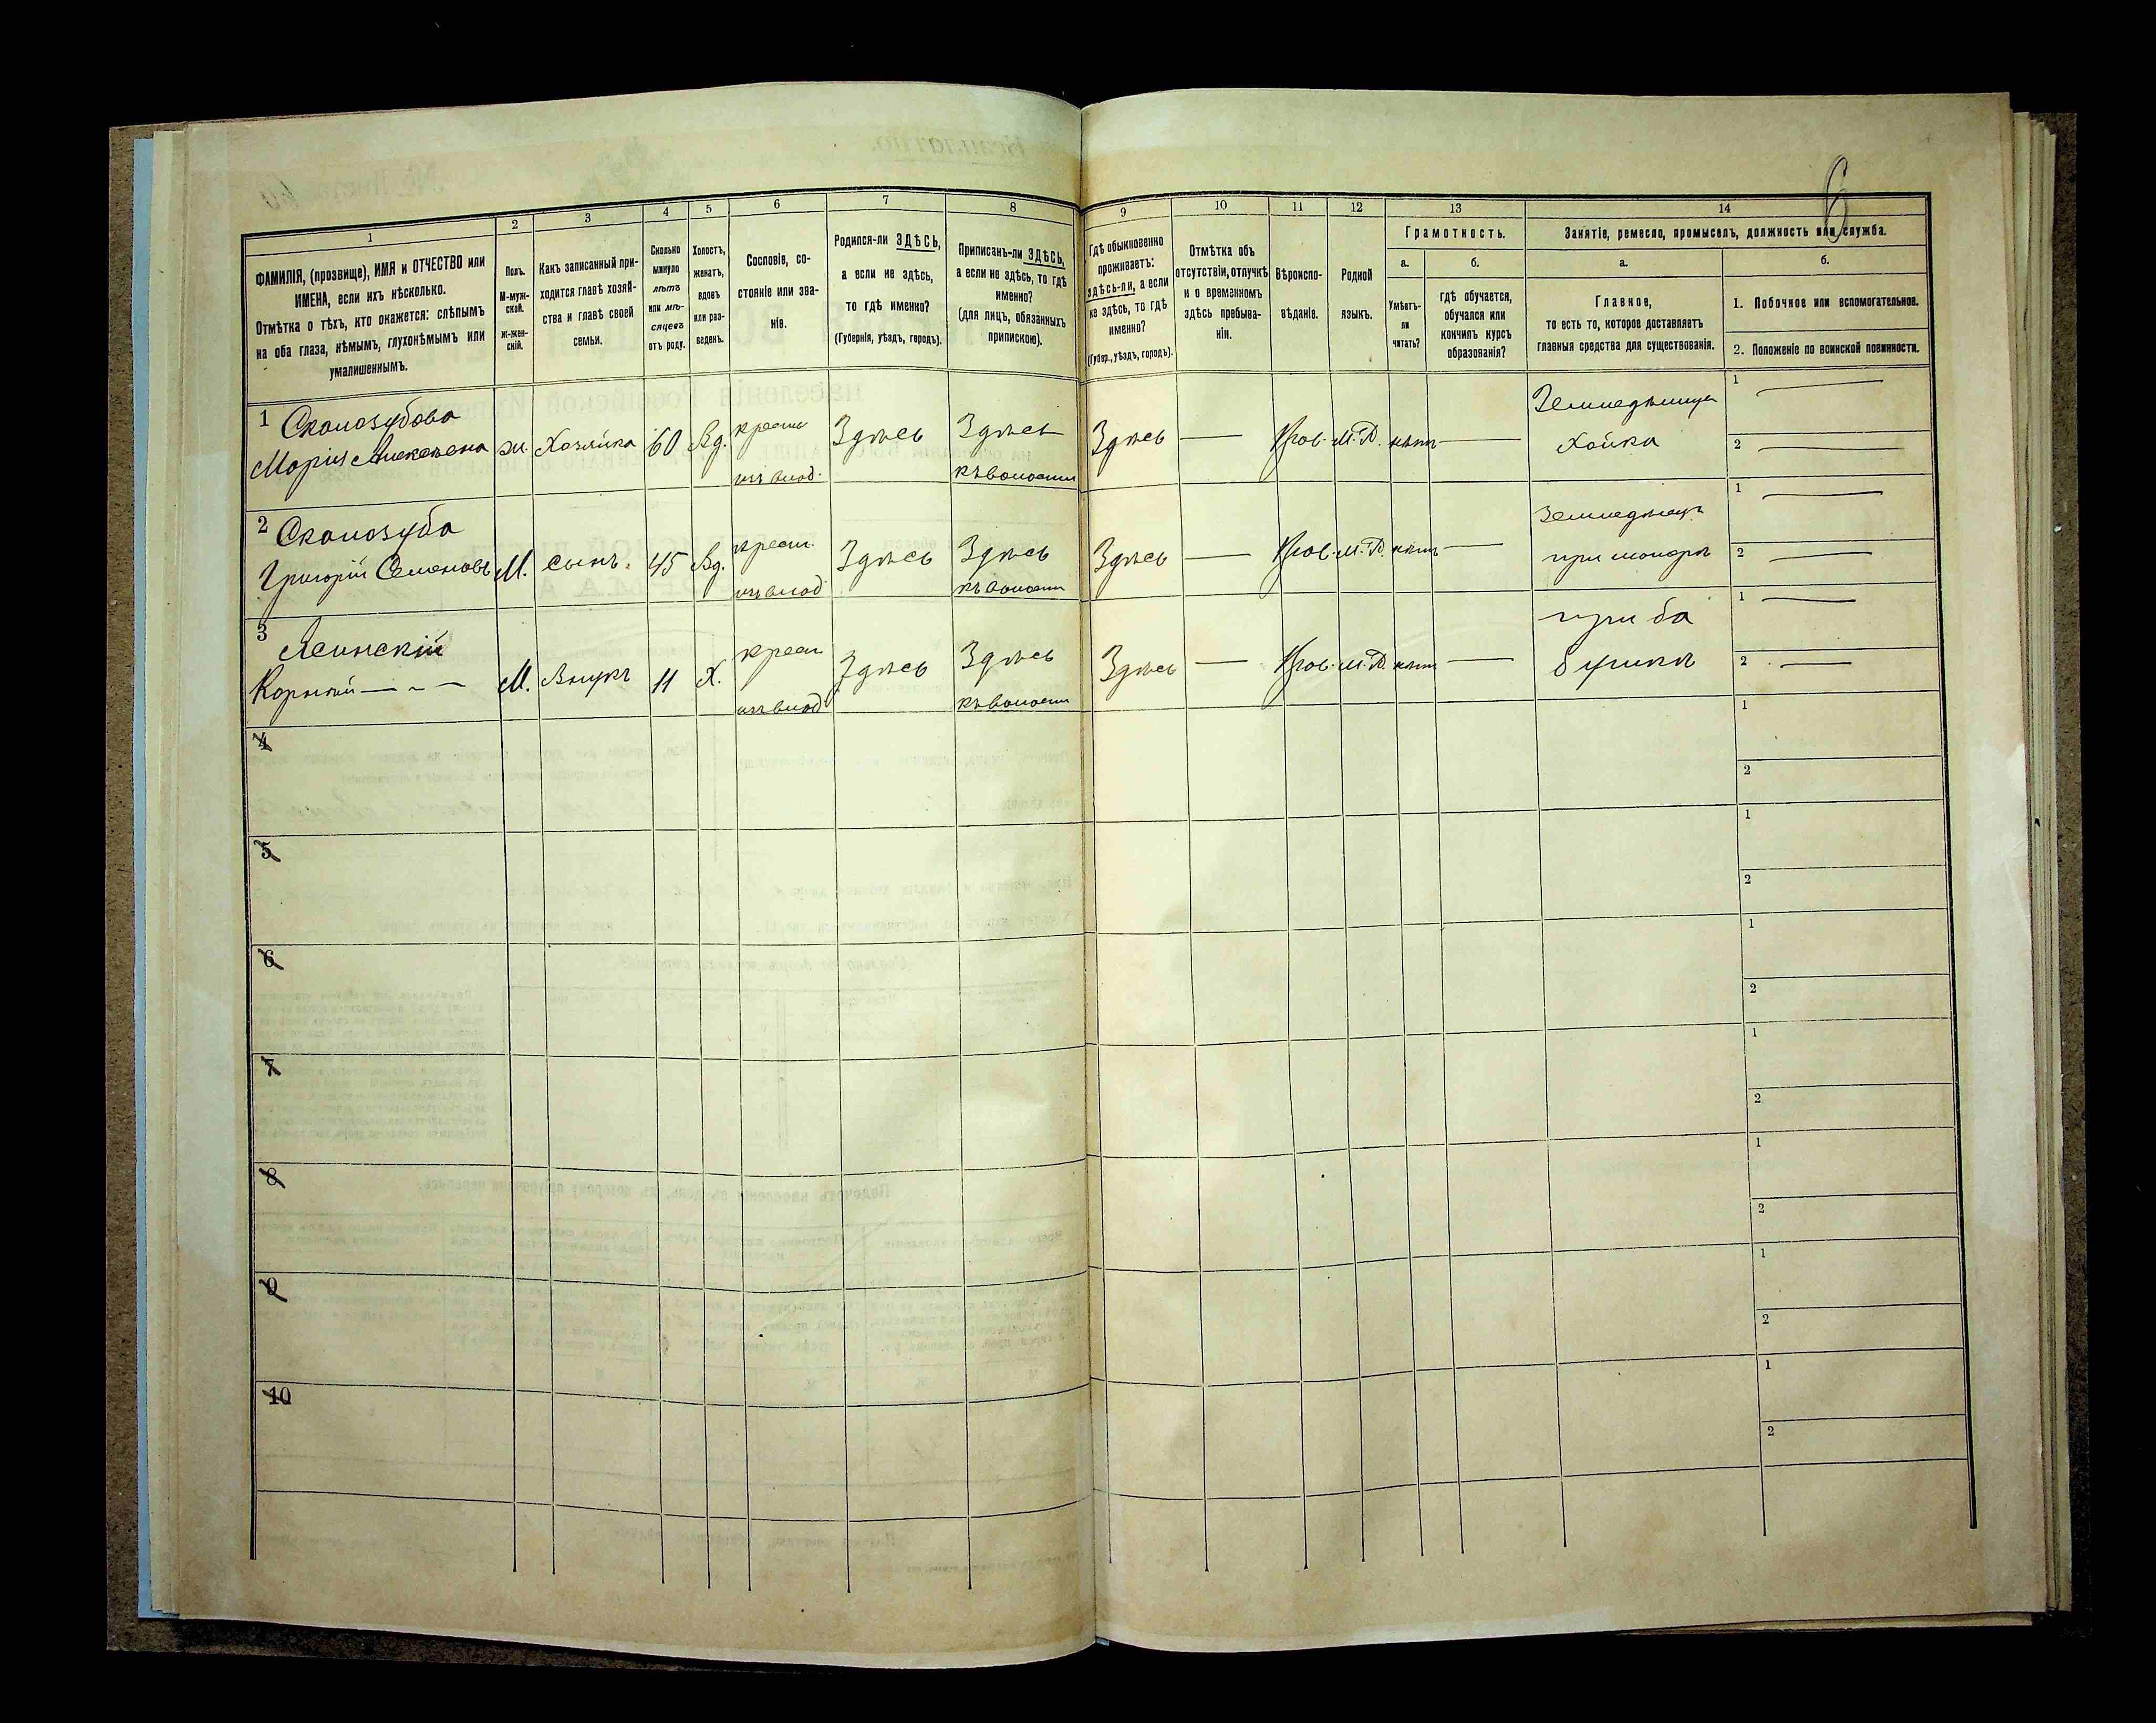 6
1 2 3 4 5 6 7 8 9 10 11 12 13 14
ФАМИЛІЯ, (прозвище), ИМЯ и ОТЧЕСТВО или
ИМЕНА, если ихъ нѣсколько.
Отмѣтка о тѣхъ, кто окажется: слѣпымъ
на оба глаза, нѣмымъ, глухонѣмымъ или
умалишеннымъ.
Полъ.
М-муж-
ской.
Ж-жен-
скій.
Какъ записанный при-
ходится главѣ хозяй-
ства и главѣ своей
семьи.
Сколько
минуло
лѣтъ
или мѣ-
сяцевъ
отъ роду.
Холостъ,
женатъ,
вдовъ
или раз-
веденъ.
Сословіе, со-
стояніе или зва-
ніе.
Родился-ли ЗДѢСЬ,
а если не здѣсь,
то гдѣ именно?
(Губернія, уѣздъ, городъ).
Приписанъ-ли ЗДѢСЬ,
а если не здѣсь, то гдѣ
именно?
(для лицъ, обязанныхъ
припискою).
Гдѣ обыкновенно
проживаетъ:
здѣсь-ли, а если
не здѣсь, то гдѣ
именно?
(Губер., уѣздъ, городъ).
Отмѣтка объ
отсутствіи, отлучкѣ
и о временномъ
здѣсь пребыва-
ніи.
Вѣроиспо-
вѣданіе.
Родной
языкъ.
Грамотность.
а.
Умѣетъ-
ли
читать?
б.
гдѣ обучается,
обучался или
кончилъ курсъ
образованія?
Занятіе, ремесло, промыселъ, должность или служба.
а.
Главное,
то есть то, которое доставляетъ
главныя средства для существованія.
б.
1. Побочное или вспомогательное.
2. Положеніе по воинской повинности.
1 Скалозубова Земледѣлица 1 —
Марія ж. Хозяйка 60 Вд. крест. Здѣсь Здѣсь Здѣсь — М. нѣтъ — Хойка 2 —
изъ влад. къ волости
2 Скалозуба 1 —
Григорій Семеновъ М. сынъ 45 Вд. крест. Здѣсь Здѣсь Здѣсь — М. нѣтъ — при матери 2 —
изъ влад къ волости
3 Ясинскій при ба 1 —
Корнѣй — „ — М. Внукъ 11 Х. крест Здѣсь Здѣсь Здѣсь — М. нѣтъ — бушкѣ 2 —
изъ влад къ волости
4 1
2
5 1
2
6 1
2
7 1
2
8 1
2
9 1
2
10 1
2